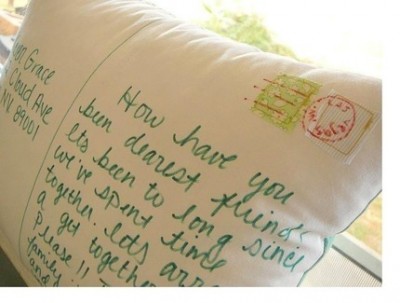 Grace
Cloud Ave
NV 89001
How have you
been dearest friend
Its been to long since
we've spent time
together. lets arra
a get together
Please!!
family
and